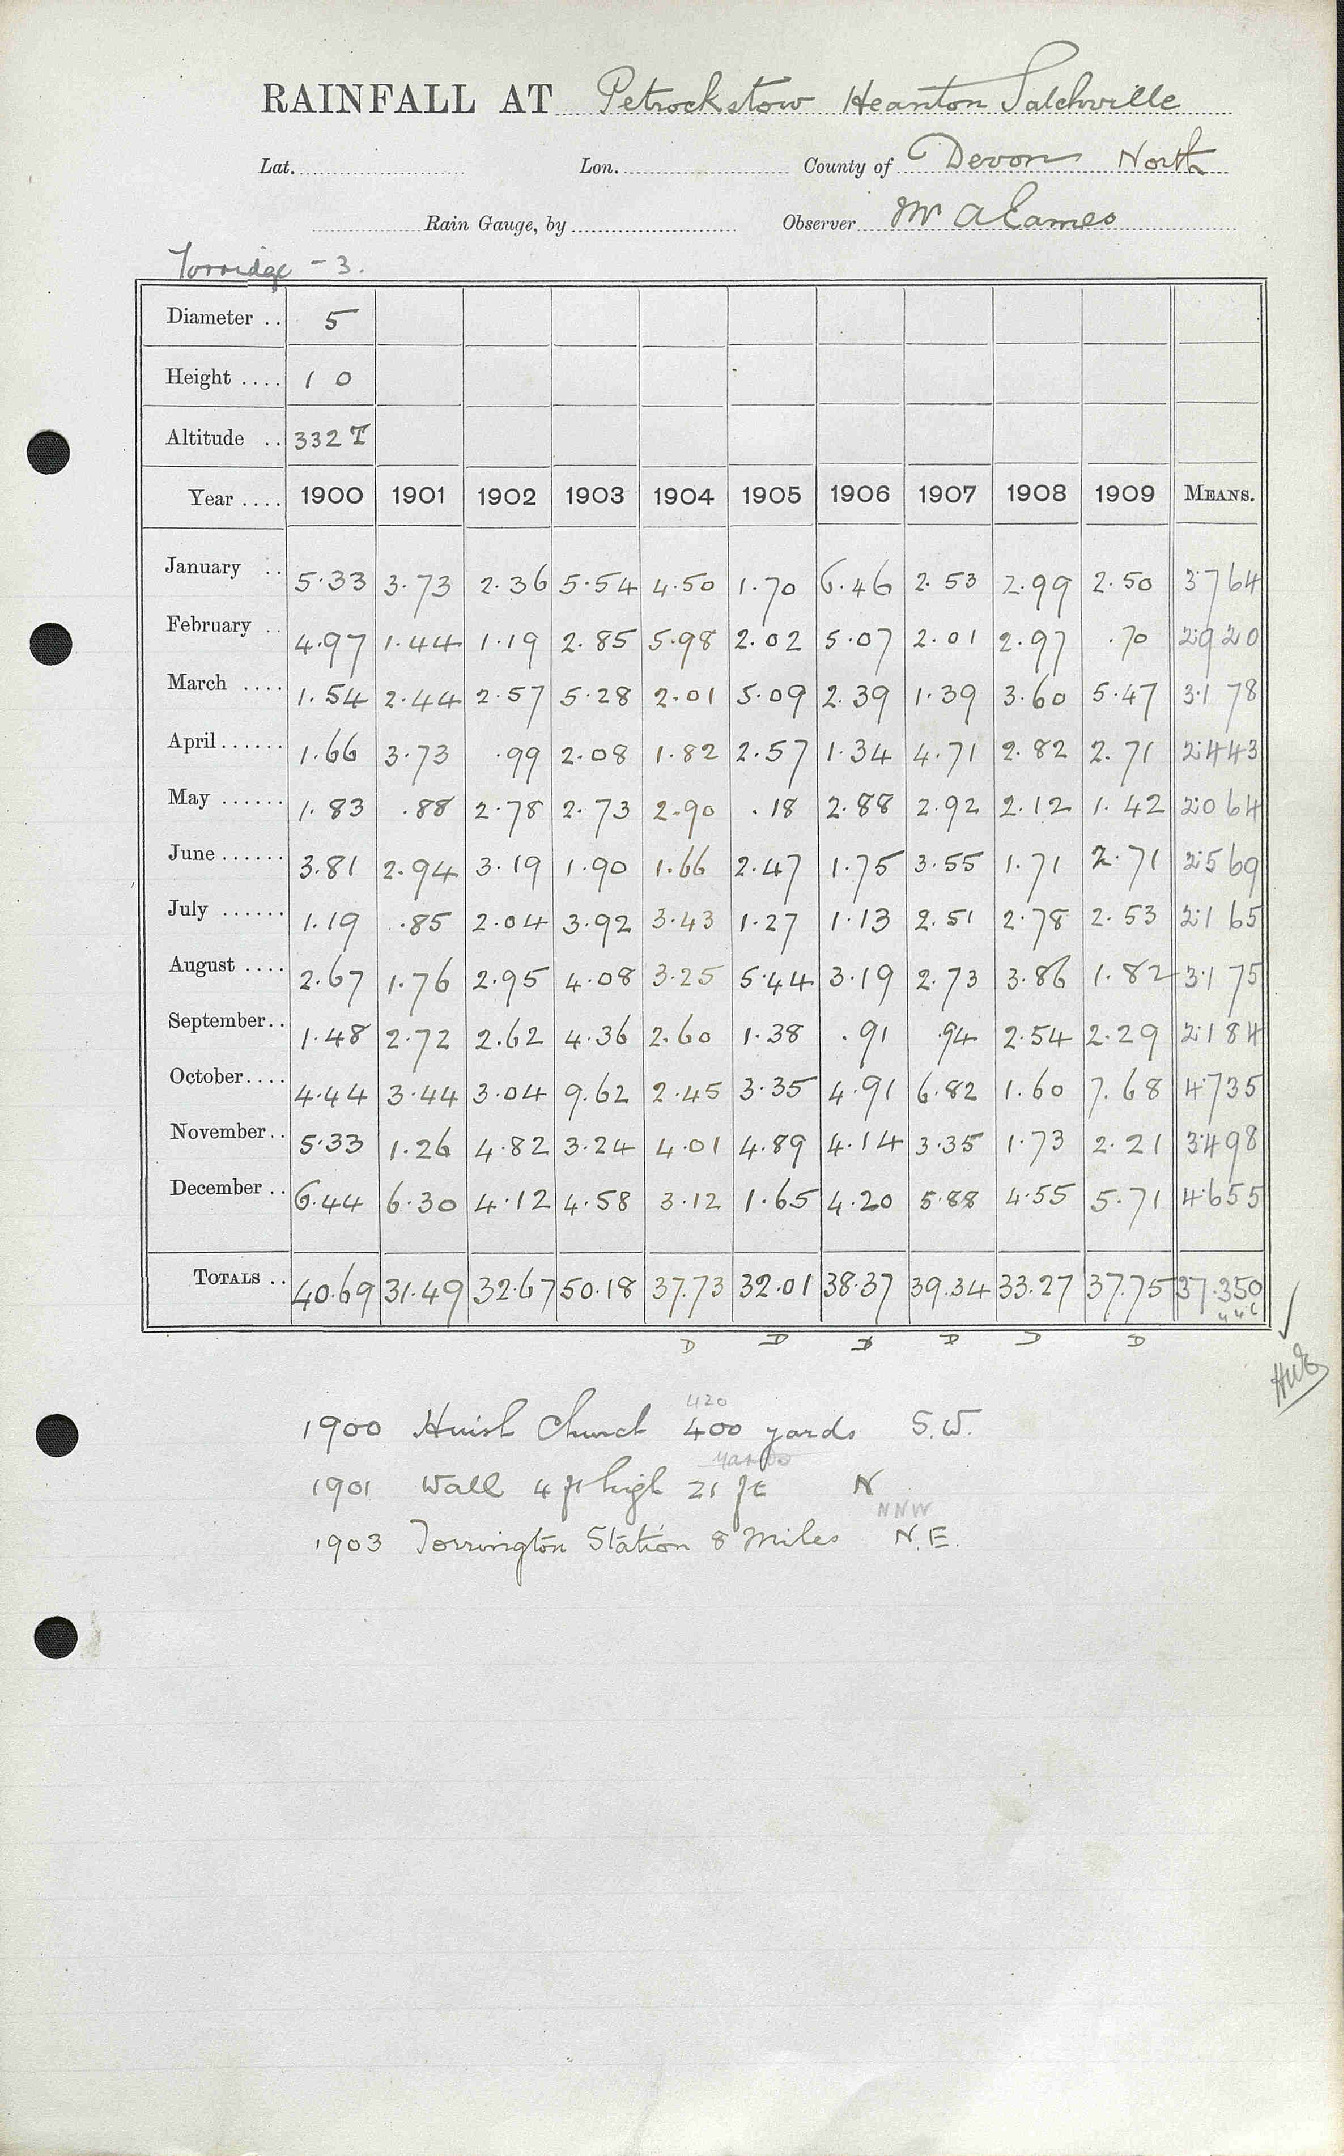 RAINFALL AT Petrockstow Heanton Satchville
Lat. Lon. County of Devon North
Rain Gauge, by Observer Mr A Eames
Torridge - 3.
Diameter .. 5
Height .... 1 0
Altitude .. 332 T
Year .... 1900 1901 1902 1903 1904 1905 1906 1907 1908 1909 MEANS.
January .. 5.33 3.73 2.36 5.54 4.50 1.70 6.46 2.53 2.99 2.50 3.764
February .. 4.97 1.44 1.19 2.85 5.98 2.02 5.07 2.01 2.97 .70 2.920
March .... 1.54 2.44 2.57 5.28 2.01 5.09 2.39 1.39 3.60 5.47 3.178
April ...... 1.66 3.73 .99 2.08 1.82 2.57 1.34 4.71 2.82 2.71 2.443
May ...... 1.83 .88 2.78 2.73 2.90 .18 2.88 2.92 2.12 1.42 2.064
June ...... 3.81 2.94 3.19 1.90 1.66 2.47 1.75 3.55 1.71 2.71 2.569
July ...... 1.19 .85 2.04 3.92 3.43 1.27 1.13 2.51 2.78 2.53 2.165
August .... 2.67 1.76 2.95 4.08 3.25 5.44 3.19 2.73 3.86 1.82 3.175
September .. 1.48 2.72 2.62 4.36 2.60 1.38 .91 .94 2.54 2.29 2.184
October .... 4.44 3.44 3.04 9.62 2.45 3.35 4.91 6.82 1.60 7.68 4.735
November .. 5.33 1.26 4.82 3.24 4.01 4.89 4.14 3.35 1.73 2.21 3.498
December .. 6.44 6.30 4.12 4.58 3.12 1.65 4.20 5.88 4.55 5.71 4.655
TOTALS .. 40.69 31.49 32.67 50.18 37.73 32.01 38.37 39.34 33.27 37.75 37.350
D D D D D D
420
1900 Huish Church 400 yards S.W.
yards
1901 Wall 4 ft high 21 ft N
NNW
1903 Torrington Station 8 Miles N.E.